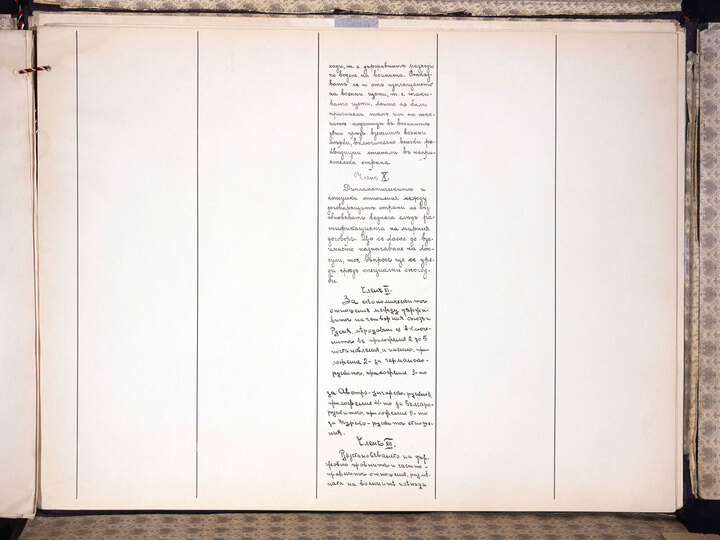 ходи, т. е. държавнитѣ разходи
по водене на войната. Отказ-
ватъ се и отъ изплащането
на военни щети, т. е. таки-
вато щети, които са били
причинени тѣмъ или на тѣх-
нитѣ поданици въ военнитѣ
зони чрезъ военни
мѣрки, включително всички ре-
квизиции станали въ непри-
ятелска страна.
Членъ X.
Дипломатическитѣ и
консулски отношения между
договорящитѣ страни се въз-
обновяватъ веднага следъ ра-
тификацията на мирния
договоръ. Що се касае до вза-
имното назначаване на кон-
сули, тоя въпросъ ще се уре-
ди чрезъ специални спогод-
би.
Членъ XI.
За економическитѣ
отношения между държа-
витѣ на четворния съюзъ и
Русия, мѣродавни са включе-
нитѣ въ приложения 2 до 5
постановления, а именно, при-
ложение 2- за германско-
рускитѣ, приложение 3-то
за Австро-унгарско-рускитѣ,
приложение 4-то за Българо-
рускитѣ, приложение 5-то
за Турско-рускитѣ отноше-
ния.
Членъ XII.
Възстановяването на дър-
жавно правнитѣ и частно-
правнитѣ отношения, размѣ-
ната на военнитѣ плѣнници